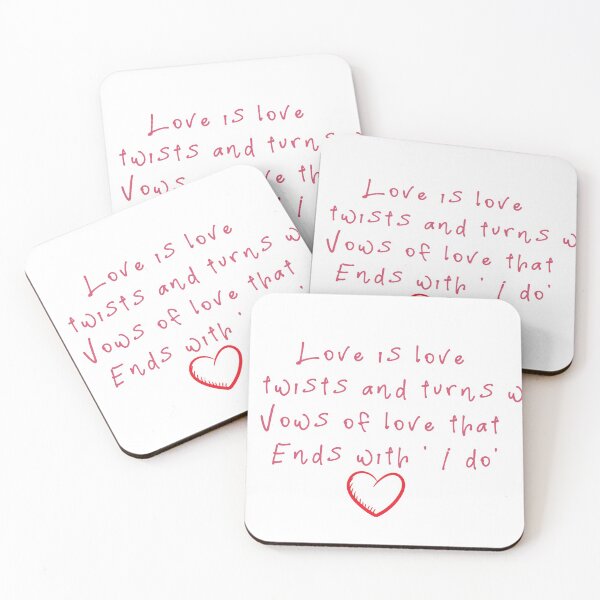 Love is love
twists and turns
Vows
Love is love
twists and turns w
Vows of love that
Ends with ' I do'
Love is love
twists and turns w
Vows of love that
Ends with '
Love is love
twists and turns w
Vows of love that
Ends with ' I do'